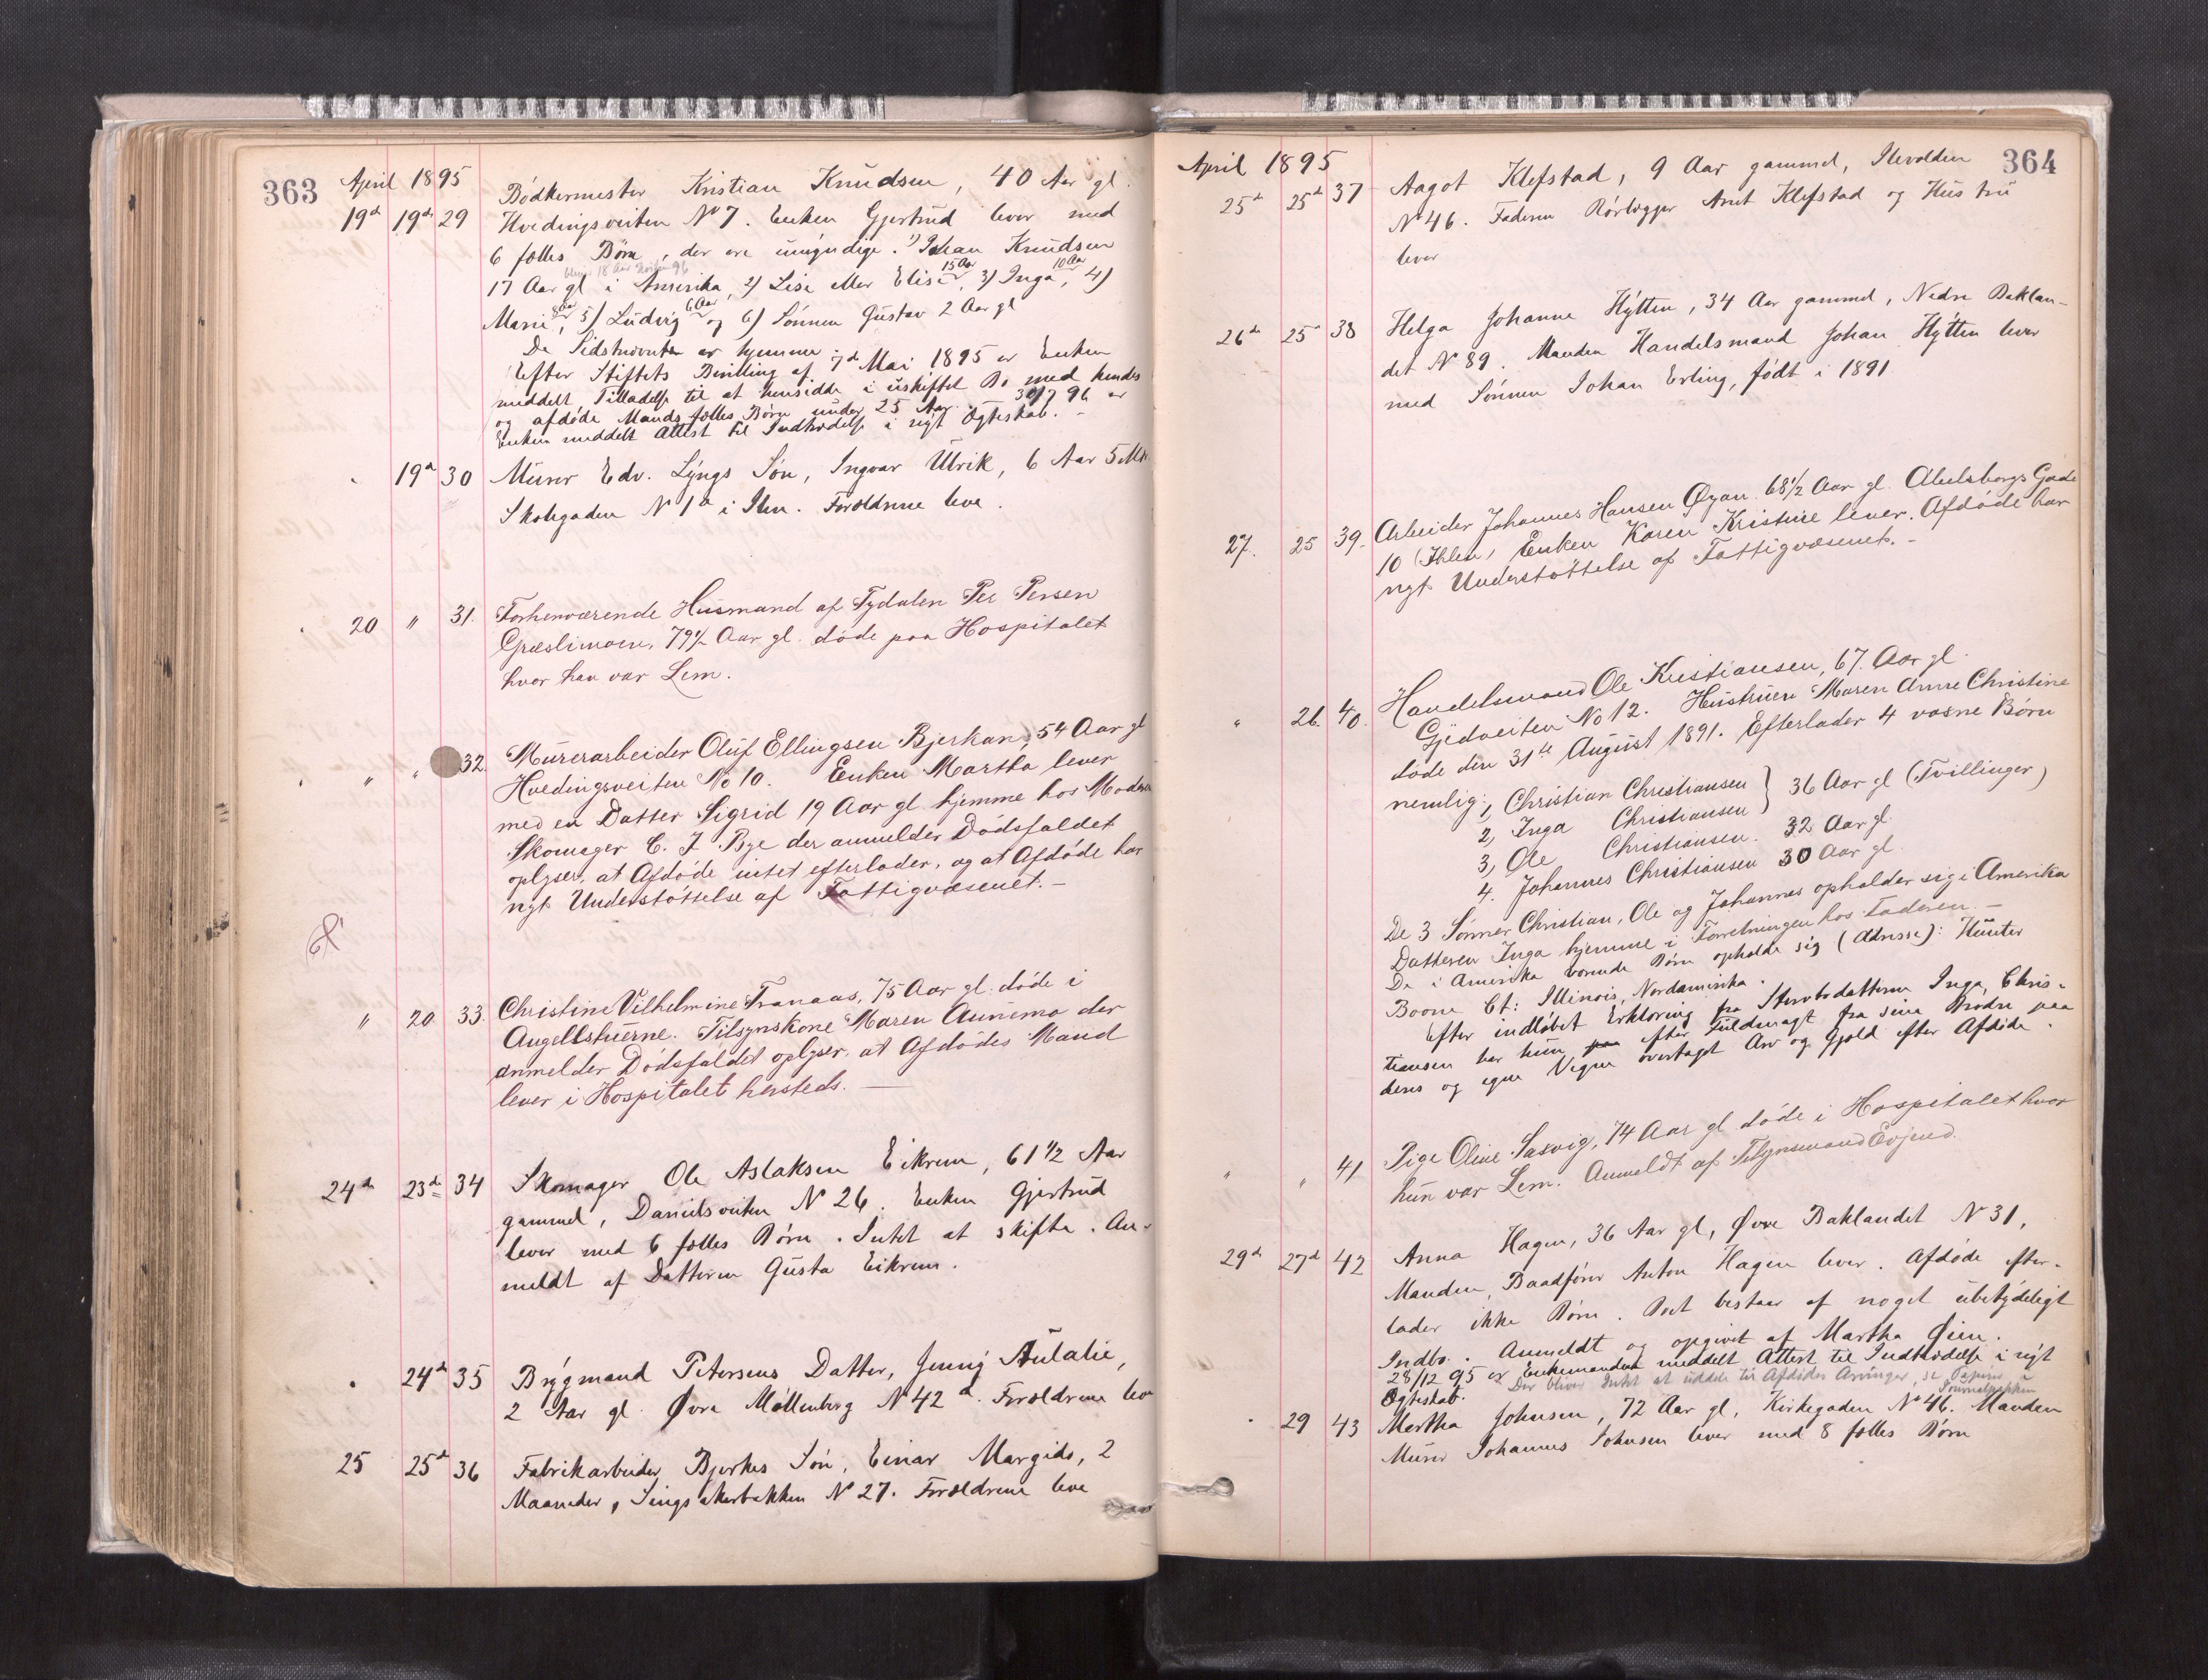 363
April 1895
19d 19de 29 Bödkermester Kristian Knudsen, 40 Aar gl.
Hvedingsveiten No 7. Enken Gjertrud lever med
6 fælles Börn, der ere umyndige. 1) Johan Knudsen
bliver 18 Aar 96
17 Aar gl i Amerika, 2) Lise eller Elise 15 Aar, 3) Inga 10 Aar, 4)
Marie 8 Aar, 5) Ludvig 6 Aar og 6) Sönnen Gustav 2 Aar gl
De Sidstnævnte er hjemme.
Efter Stiftets Bevilling af 7d Mai 1895 er Enken
meddelt Tilladelse til at hensidde i uskiftet Bo med hendes
og afdöde Mands fælles Börn under 25 Aar. 30/7 96 er
Enken meddelt Attest til Indtrædelse i nyt Ægteskab. -
19d 30 Murer Edv. Lyngs Sön, Ingvar Ulrik, 6 Aar 5 Mdr
Skolegaden No 1a i Ilen. Forældrene leve.
20 " 31. Forhenværende Husmand af Tydalen Per Persen
Græslimoen, 79 1/2 Aar gl. döde paa Hospitalet
hvor han var Lem.
" " 32. Murerarbeider Oluf Ellingsen Bjerkan, 54 Aar gl
Hvedingsveiten No 10. Enken Martha lever
med en Datter Sigrid 19 Aar gl. hjemme hos Moderen
Skomager C. J. Rye der anmelder Dödsfaldet
oplyser, at Afdöde intet efterlader, og at Afdöde har
nydt Understöttelse af Fattigvæsenet. -
" 20 33. Christine Vilhelmine Tranaas, 75 Aar gl. döde i
Angellstuerne. Tilsynskone Maren Aunemo der
anmelder Dödsfaldet oplyser, at Afdödes Mand
lever i Hospitalet hersteds. -
24de 23de 34 Skomager Ole Aslaksen Eikrem, 61 1/2 Aar
gammel, Danielsveiten No 26. Enken Gjertrud
lever med 6 fælles Börn. Intet at skifte. An-
meldt af Datteren Gusta Eikrem.
" 24d 35 Brygmand Petersens Datter, Jenny Aulalie,
2 Aar gl. Övre Möllenberg No 42a. Forældrene leve
25 25d 36 Fabrikarbeider Bjerkes Sön, Einar Margido, 2
Maaneder, Singsakerbakken No 27. Forældrene leve
April 1895
364
25de 25de 37 Aagot Klefstad, 9 Aar gammel, Ilevolden
No 46. Faderen Rörlægger Arnt Klefstad og Hustru
lever
26de 25de 38 Helga Johanne Hÿtten, 34 Aar gammel, Nedre Baklan-
det No 89. Manden Handelsmand Johan Hÿtten lever
med Sönnen Johan Erling, födt i 1891
27. 25 39. Arbeider Johannes Hansen Øyan. 68 1/2 Aar gl. Abelsborgs Gade
10 (Ihlen) Enken Karen Kristine lever. Afdöde har
nydt Understöttelse af Fattigvæsenet. -
" 26. 40. Handelsmand Ole Kristiansen, 67. Aar gl.
Gjedveiten No 12. Hustruen Maren Anne Christine
döde den 31te August 1891. Efterlader 4 voxne Börn
nemlig: 1, Christian Christiansen } 36 Aar gl (Tvillinger)
2, Inga Christiansen
3, Ole Christiansen. 32 Aar gl.
4. Johannes Christiansen 30 Aar gl.
De 3 Sönner Christian, Ole og Johannes opholder sig i Amerika
Datteren Inga hjemme i Forretningen hos Faderen. -
De i Amerika værende Börn opholde sig (Adresse): Hunter
Boone Ct: Illinois, Nordamerika.
Efter indlöbet Erklæring fra Stervbodatteren Inga, Chris-
tiansen har hun paa efter Fuldmagt fra sine Brödre paa
deres og egne Vegne overtaget Arv og Gjæld efter Afdöde.
" " 41 Pige Oline Sasvig, 74 Aar gl döde i Hospitalet hvor
hun var Lem. Anmeldt af Tilsynsmand Evjend.
29de 27d 42 Anna Hagen, 36 Aar gl, Övre Baklandet No 31,
Manden, Baadförer Anton Hagen lever. Afdöde efter-
lader ikke Börn. Boet bestaar af noget ubetydeligt
Indbo. Anmeldt og opgivet af Martha Öien.
28/12 95 er Enkemanden meddelt Attest til Indtrædelse i nyt
Ægteskab. Der bliver Intet at uddele til Afdödes Arvinger, se Papirer
Journalpakken
" 29 43 Martha Johnsen, 72 Aar gl, Kirkegaden No 46. Manden
Murer Johannes Johnsen lever med 8 fælles Börn